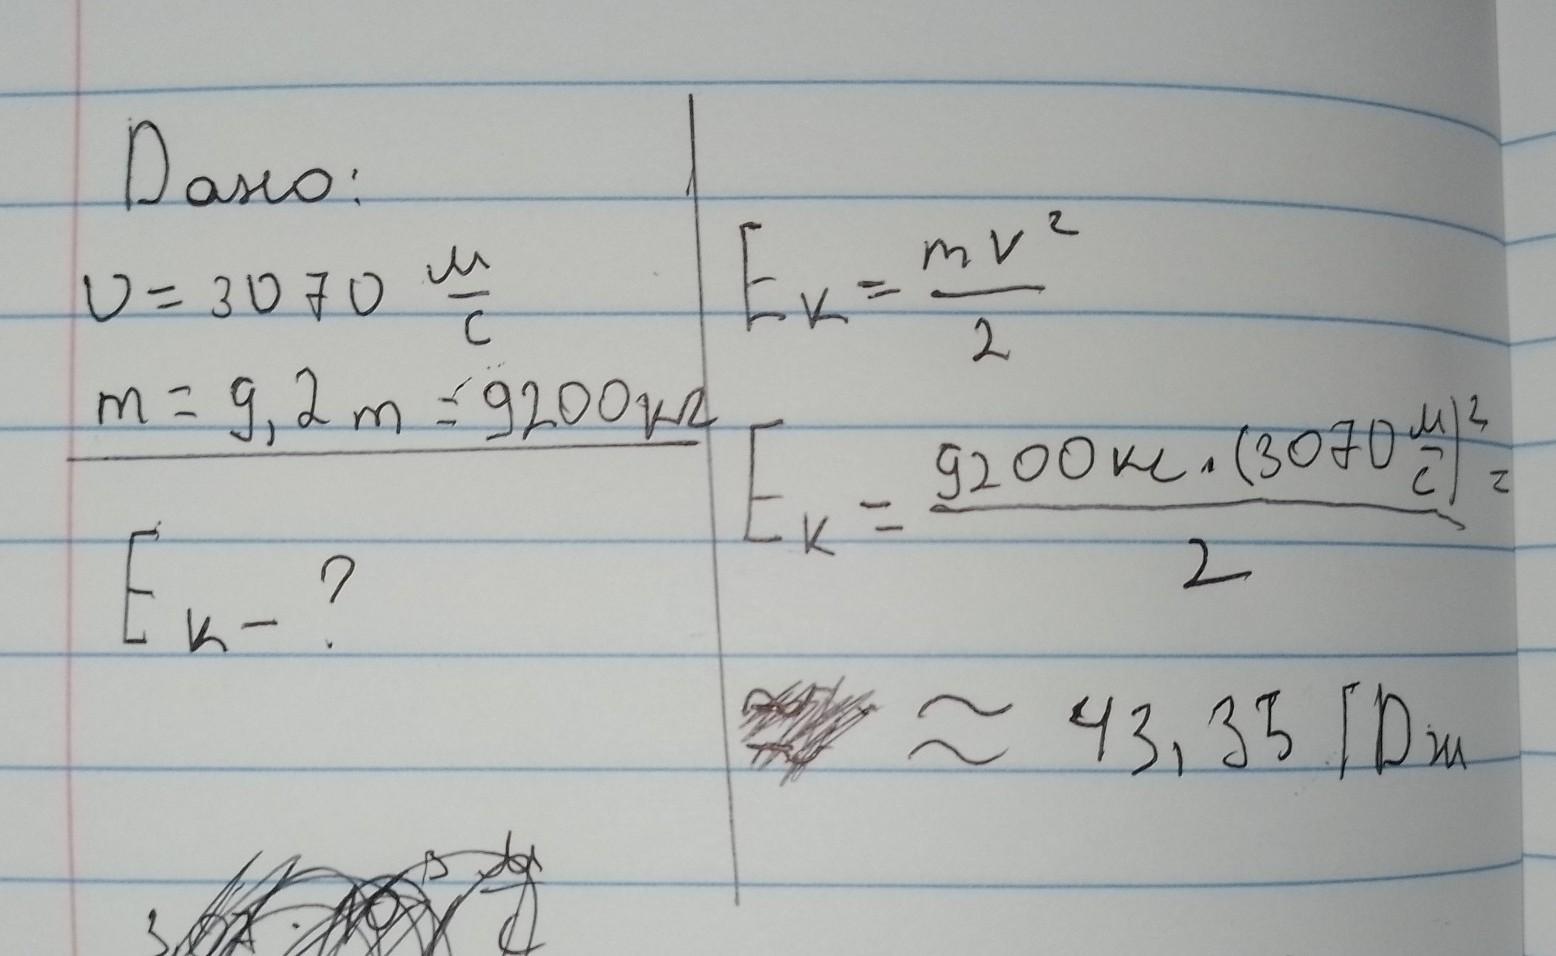 Дано:
υ = 3070 м/с
m = 9,2 т = 9200 кг
Eк - ?
Eк = mv²/2
Eк = 9200 кг · (3070 м/с)²/2 =
≈ 43,35 ГДж